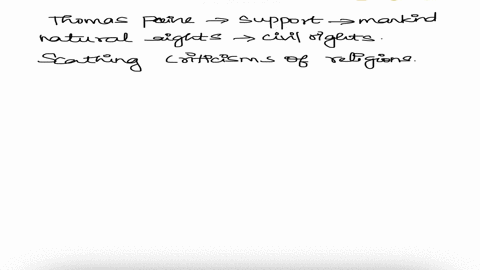 Thomas Paine → support → mankind
natural rights → civil rights.
Scathing criticisms of religions.